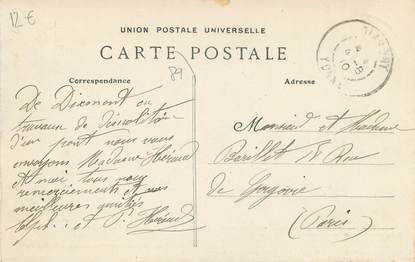 12 €
UNION POSTALE UNIVERSELLE
CARTE POSTALE
Correspondance
89
Adresse
De Dixmont ou
travaux de démolition
d'un pont nous vous
envoyons Madame Héraud
et moi tous nos
remerciements et nos
meilleures amitiés
et P. Héraud
Monsieur et Madame
Barillet Rue
de Gergovie
(Paris)